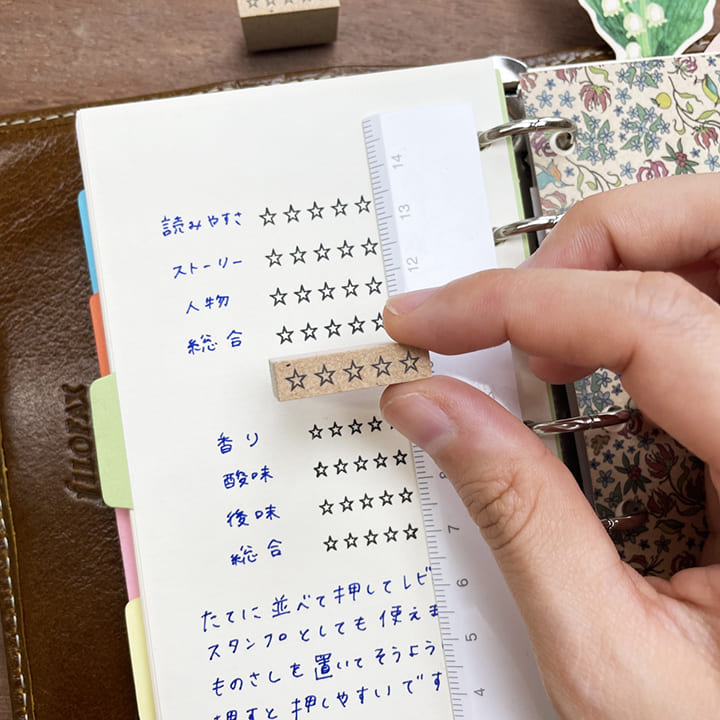 読みやすさ ☆☆☆☆☆
ストーリー ☆☆☆☆☆
人物 ☆☆☆☆☆
総合 ☆☆☆☆☆
香り ☆☆☆☆☆
酸味 ☆☆☆☆☆
後味 ☆☆☆☆☆
総合 ☆☆☆☆☆
たてに並べて押してレビ
スタンプとしても使えま
ものさしを置いてそうよう
押すと押しやすいです
14
13
12
8
7
6
5
4
filofax